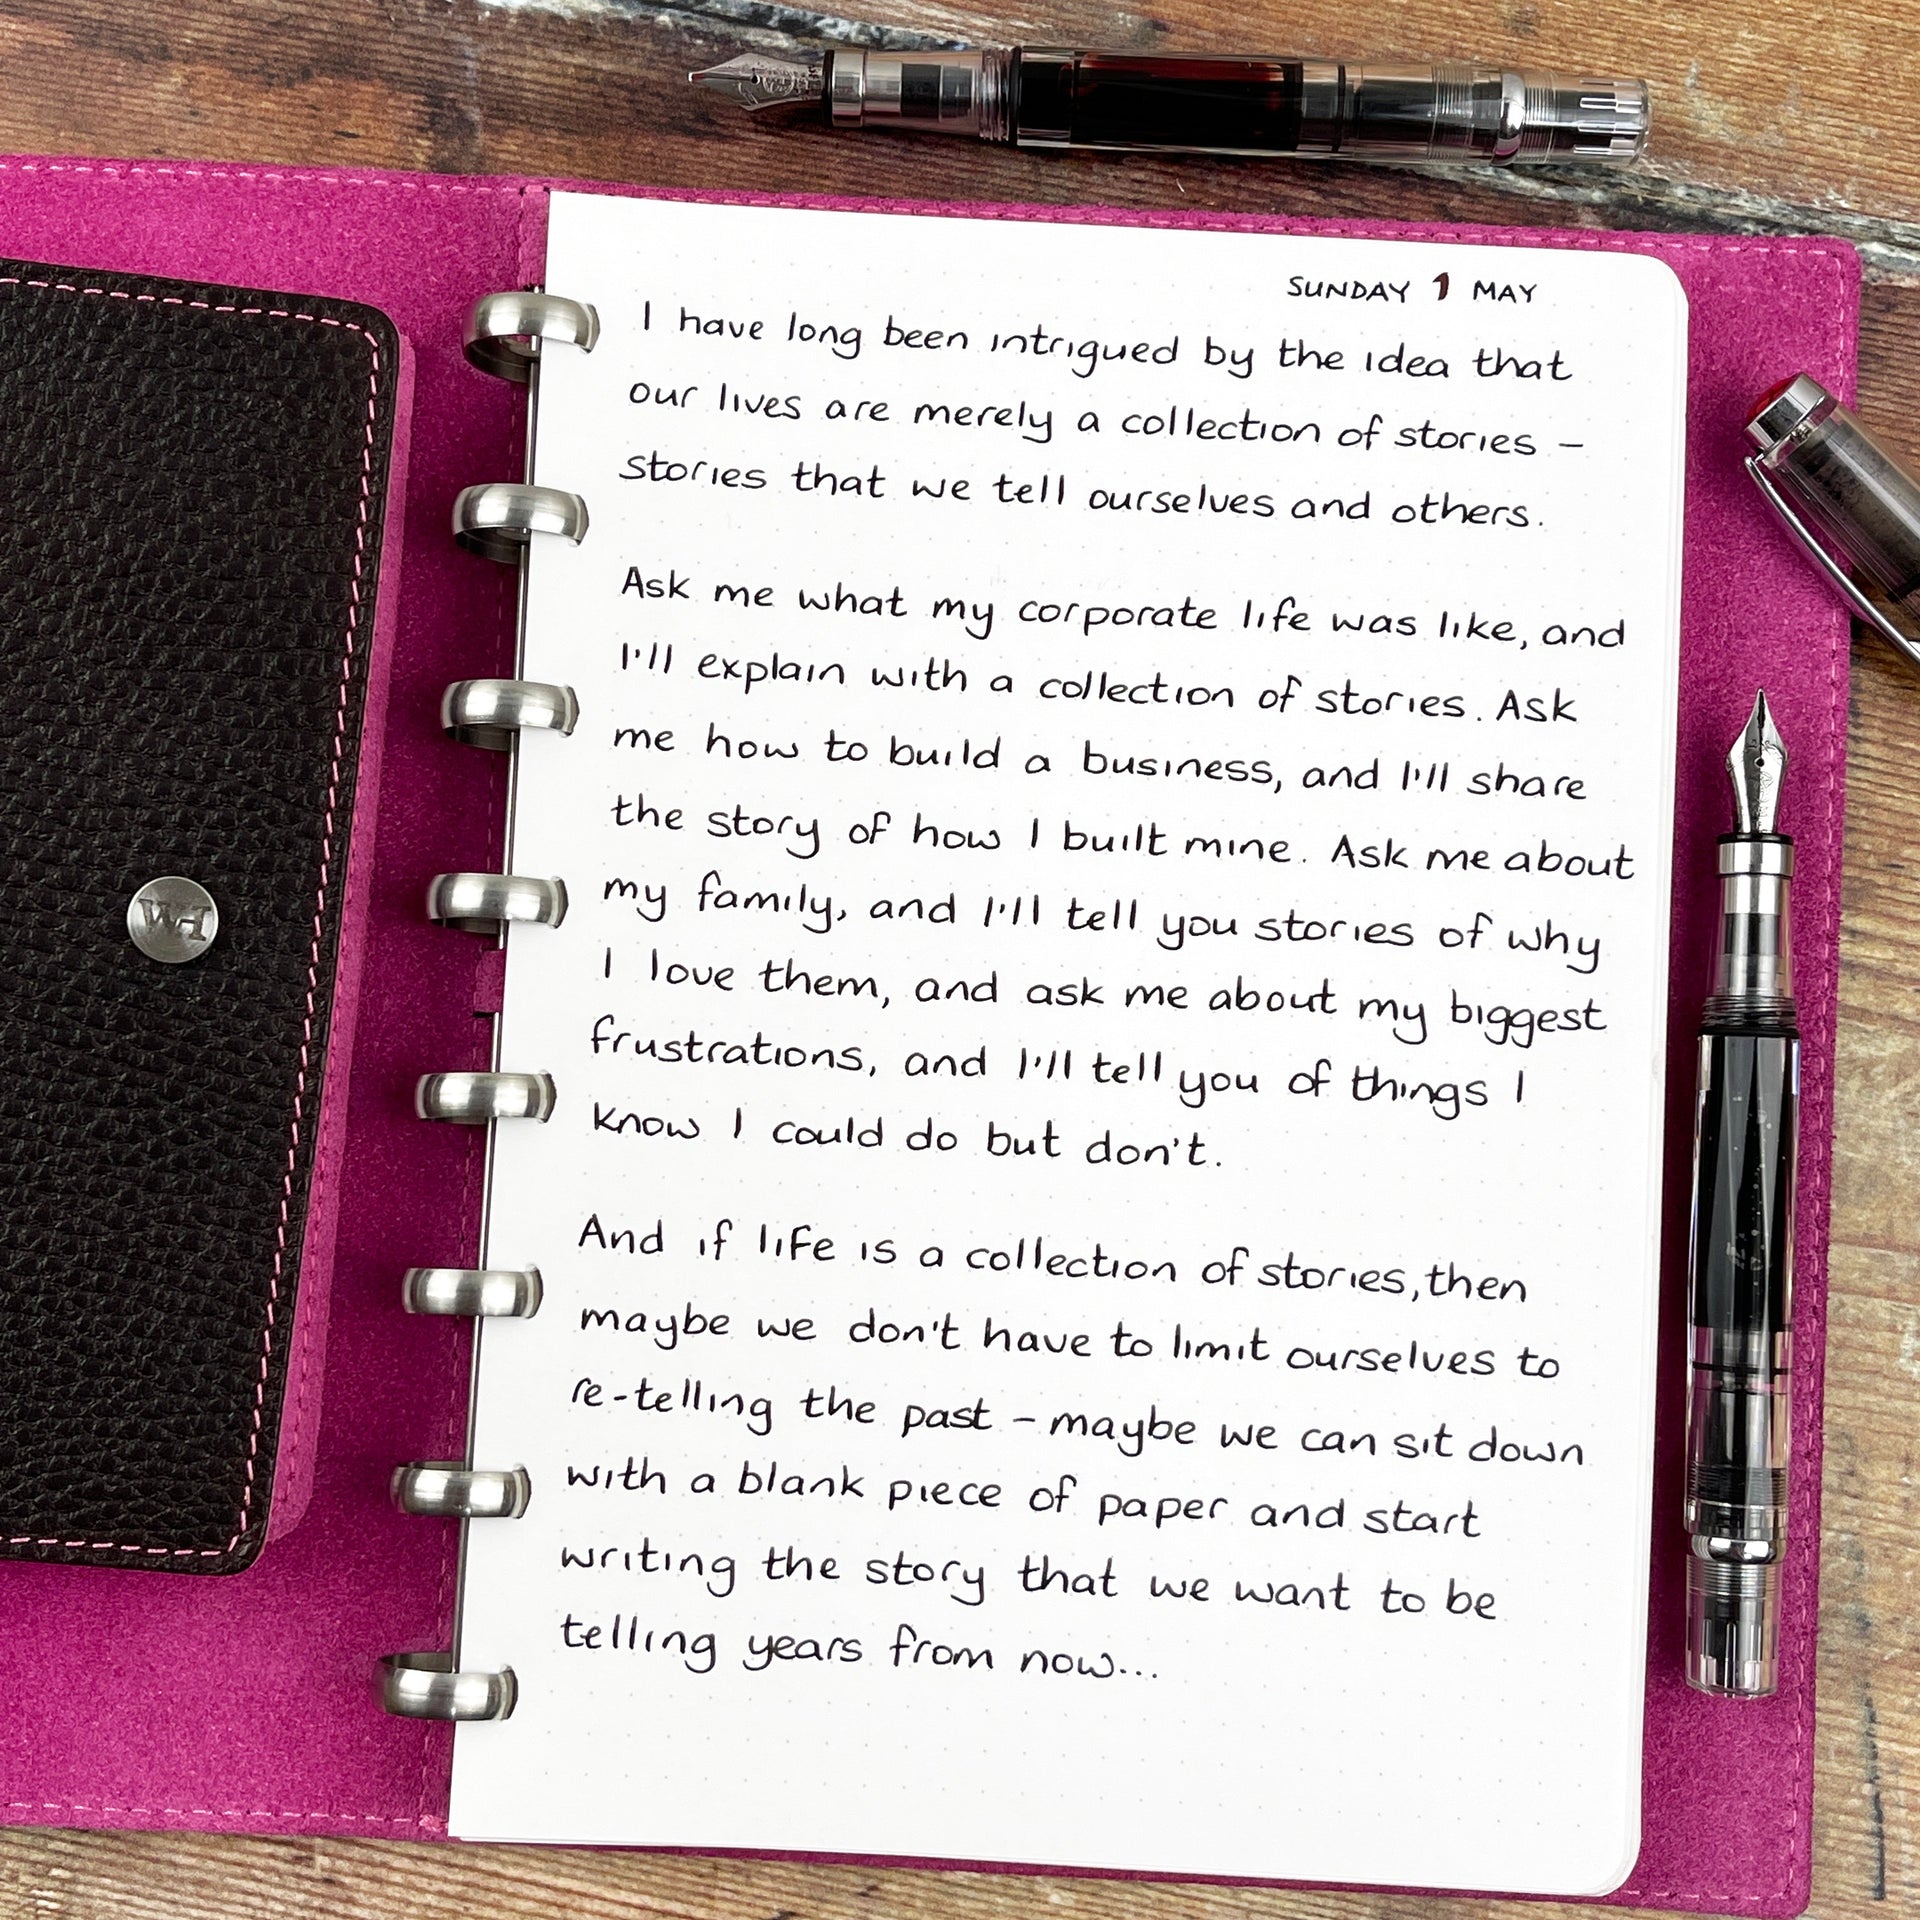 SUNDAY 1 MAY
I have long been intrigued by the idea that
our lives are merely a collection of stories –
stories that we tell ourselves and others.
Ask me what my corporate life was like, and
I'll explain with a collection of stories. Ask
me how to build a business, and I'll share
the story of how I built mine. Ask me about
my family, and I'll tell you stories of why
I love them, and ask me about my biggest
frustrations, and I'll tell you of things I
know I could do but don't.
And if life is a collection of stories, then
maybe we don't have to limit ourselves to
re-telling the past – maybe we can sit down
with a blank piece of paper and start
writing the story that we want to be
telling years from now...